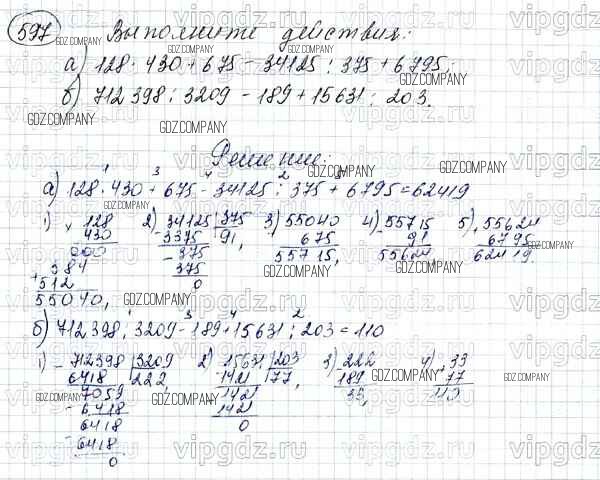 597 Выполните действия:
а) 128 · 430 + 675 - 34125 : 375 + 6795;
б) 712398 : 3209 - 189 + 15631 : 203.
Решение:
а) 128 · 430 + 675 - 34125 : 375 + 6795 = 62419
1) × 128 2) 34125 | 375 3) 55040 4) 55715 5) 55624
430 - 3375 91, 675 91 6795
000 - 375 55715, 55624, 62419.
384 375
+ 512 0
55040,
б) 712398 : 3209 - 189 + 15631 : 203 = 110
1) - 712398 | 3209 2) - 15631 | 203 3) - 222 4) + 33
6418 222 1421 77, 189 77
7059 - 1421 33, 110
- 6418 1421
6418 0
- 6418
0
vipgdz.ru
GDZ.COMPANY